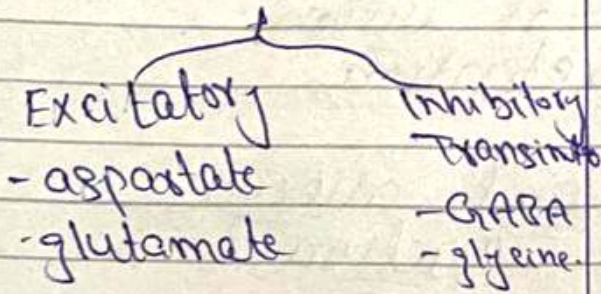 Excitatory
- aspartate
- glutamate
Inhibitory
- GABA
- glycine.